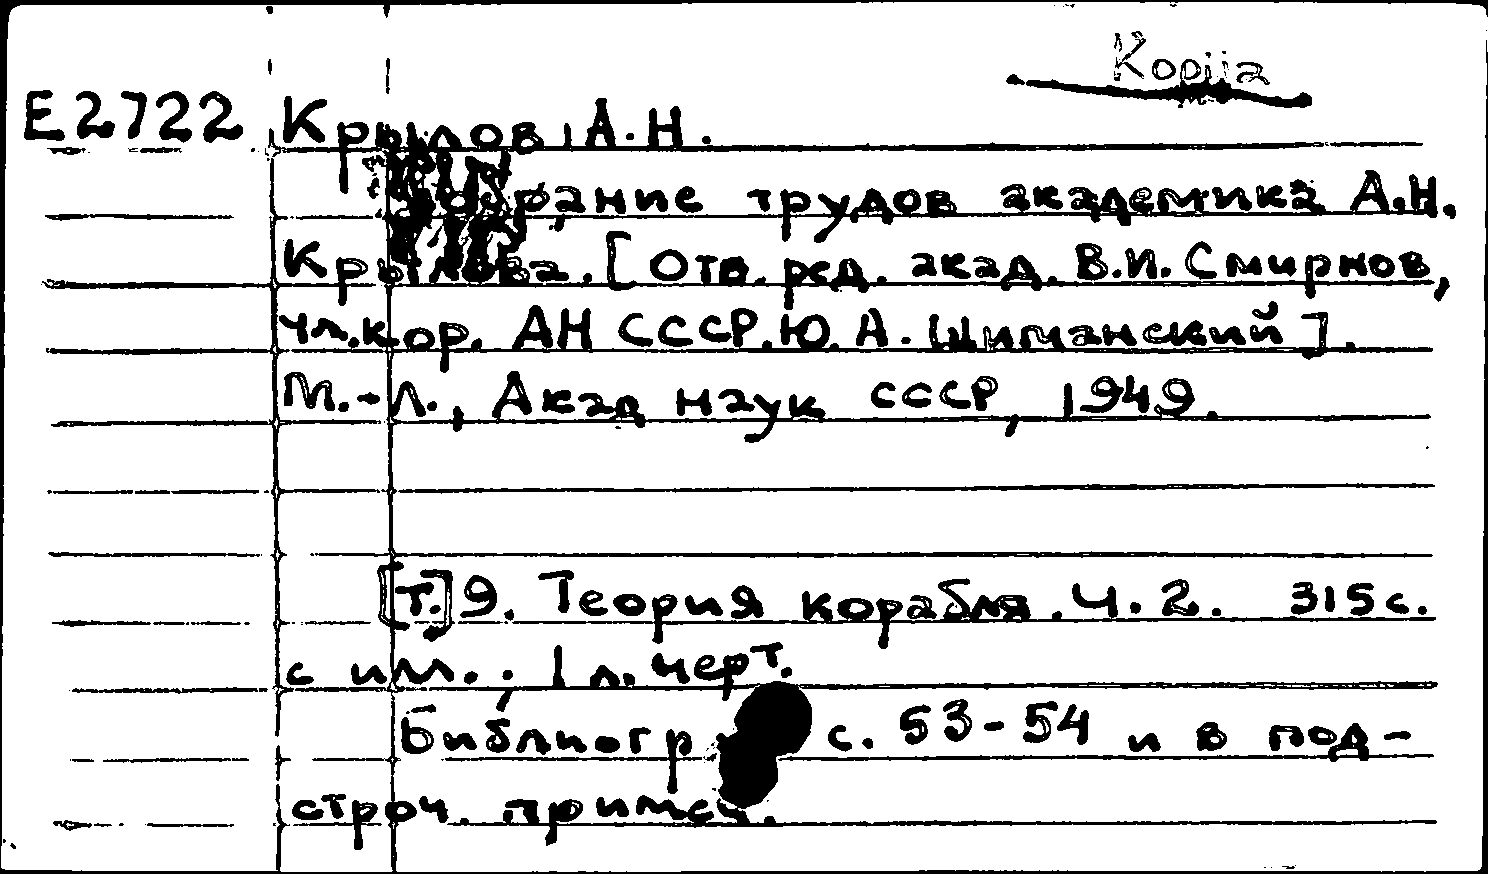 Kopija
E2722 Крылов, А.Н.
Собрание трудов академика А.Н.
Крылова. [Отв. ред. акад. В.И. Смирнов,
чл.кор. АН СССР Ю.А. Шиманский].
М.-Л., Акад наук СССР, 1949.
[т.] 9. Теория корабля. Ч. 2. 315 с.
с ил.; 1 л. черт.
Библиогр. с. 53-54 и в под-
строч. примеч.